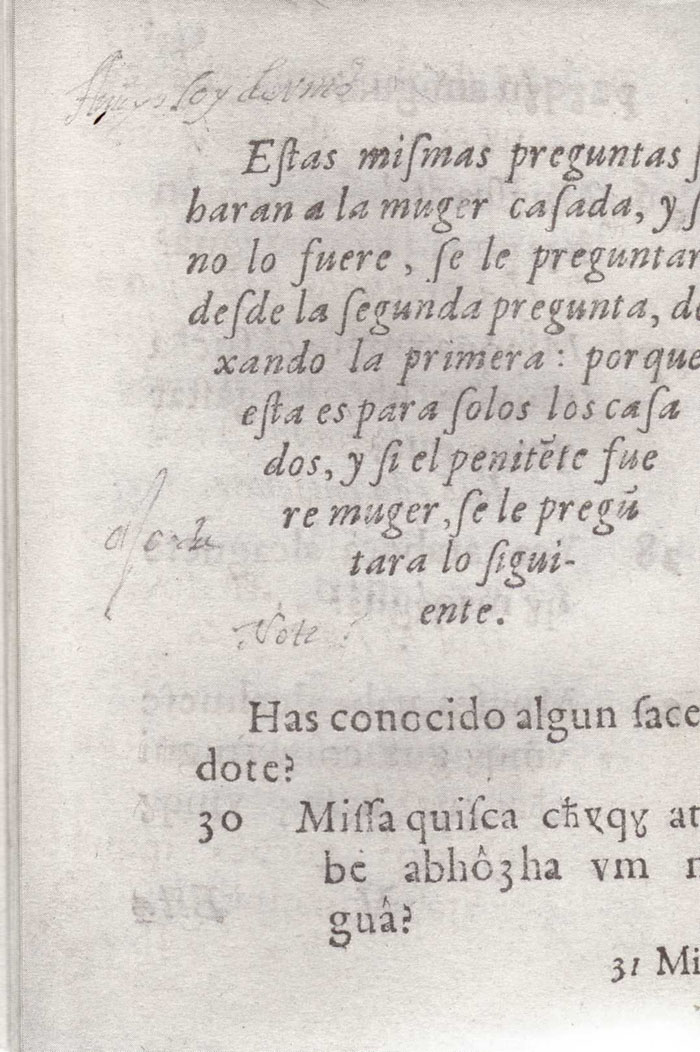 soy de vm
Eſtas miſmas preguntas ſ
haran a la muger caſada, y ſ
no lo fuere, ſe le preguntar
deſde la ſegunda pregunta, de
xando la primera: porque
eſta es para ſolos los caſa
dos, y ſi el penitẽte fue
re muger, ſe le pregũ
tara lo ſigui-
ente.
Note
Has conocido algun ſace
dote?
30 Miſſa quiſca at
be abhôʒha vm
guâ?
31 Mi